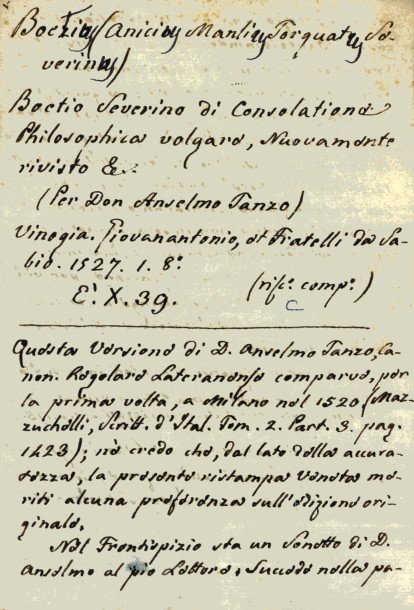 Boezius (Anicius Manlius Torquatus Se-
verinus)
Boetio Severino di Consolatione
Philosophica volgare, Nuovamente
rivisto &c.
(Per Don Anselmo Tanzo)
Vinegia. Giovanantonio, et Fratelli da Sa-
bio. 1527. 1. 8.º
E. X. 39. (rifº. compº.)
C
Questa Versione di D. Anselmo Tanzo, Ca-
non. Regolare Lateranense comparve, per
la prima volta, a Milano nel 1520 (Maz-
zuchelli, Scritt. d'Ital. Tom. 2. Part. 3. pag.
1423); nè credo che, dal lato della accura-
tezza, la presente ristampa Veneta me-
riti alcuna preferenza sull'edizione ori-
ginale.
Nel Frontispizio sta un Sonetto di D.
Anselmo al pio Lettore. Succede nella pa-